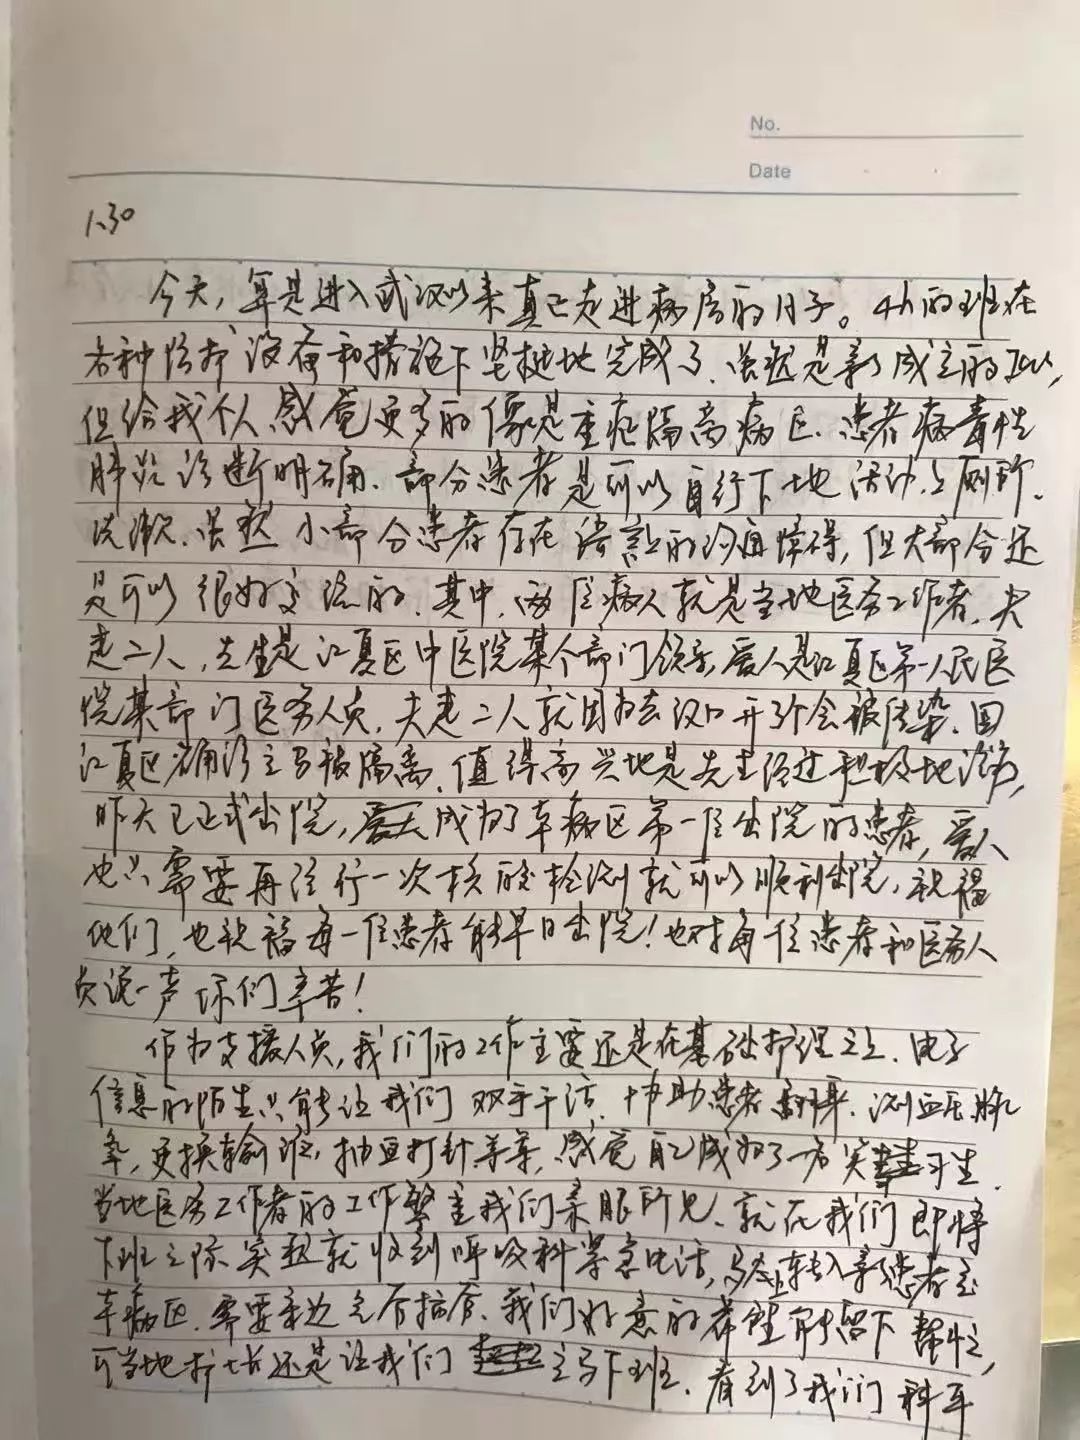 No.
Date
1.30
今天,算是进入武汉以来真正走进病房的日子。4h的班在
各种防护设备和措施下坚挺地完成了.虽然是新成立的ICU,
但给我个人感觉更多的像是重症隔离病区.患者病毒性
肺炎诊断明确.部分患者是可以自行下地活动.上厕所.
洗漱.虽然小部分患者存在语言上的沟通障碍,但大部分还
是可以很好交流的.其中,两位病人就是当地医务工作者,夫
妻二人,先生是江夏区中医院某个部门领导,爱人是江夏区第一人民医
院某部门医务人员.夫妻二人就因为去汉口开了个会被传染.回
江夏区确诊立马被隔离.值得高兴地是先生经过积极地治疗,
昨天已正式出院,成为了本病区第一位出院的患者,爱人
也只需要再进行一次核酸检测就可以顺利出院,祝福
他们,也祝福每一位患者能早日出院!也对每一位患者和医务人
员说一声 你们辛苦!
作为支援人员,我们的工作主要还是在基础护理之上.电子
信息的陌生只能让我们双手干活.协助患者翻身.测血压脉
率,更换输液,抽血打针等等,感觉自己成为了一名实习生.
当地医务工作者的工作繁重我们亲眼所见.就在我们即将
下班之际突然就收到呼吸科紧急电话,马上转入新患者至
本病区.需要床边气管插管.我们好意的希望能留下帮忙,
可当地护士长还是让我们立马下班.看到了我们科耳